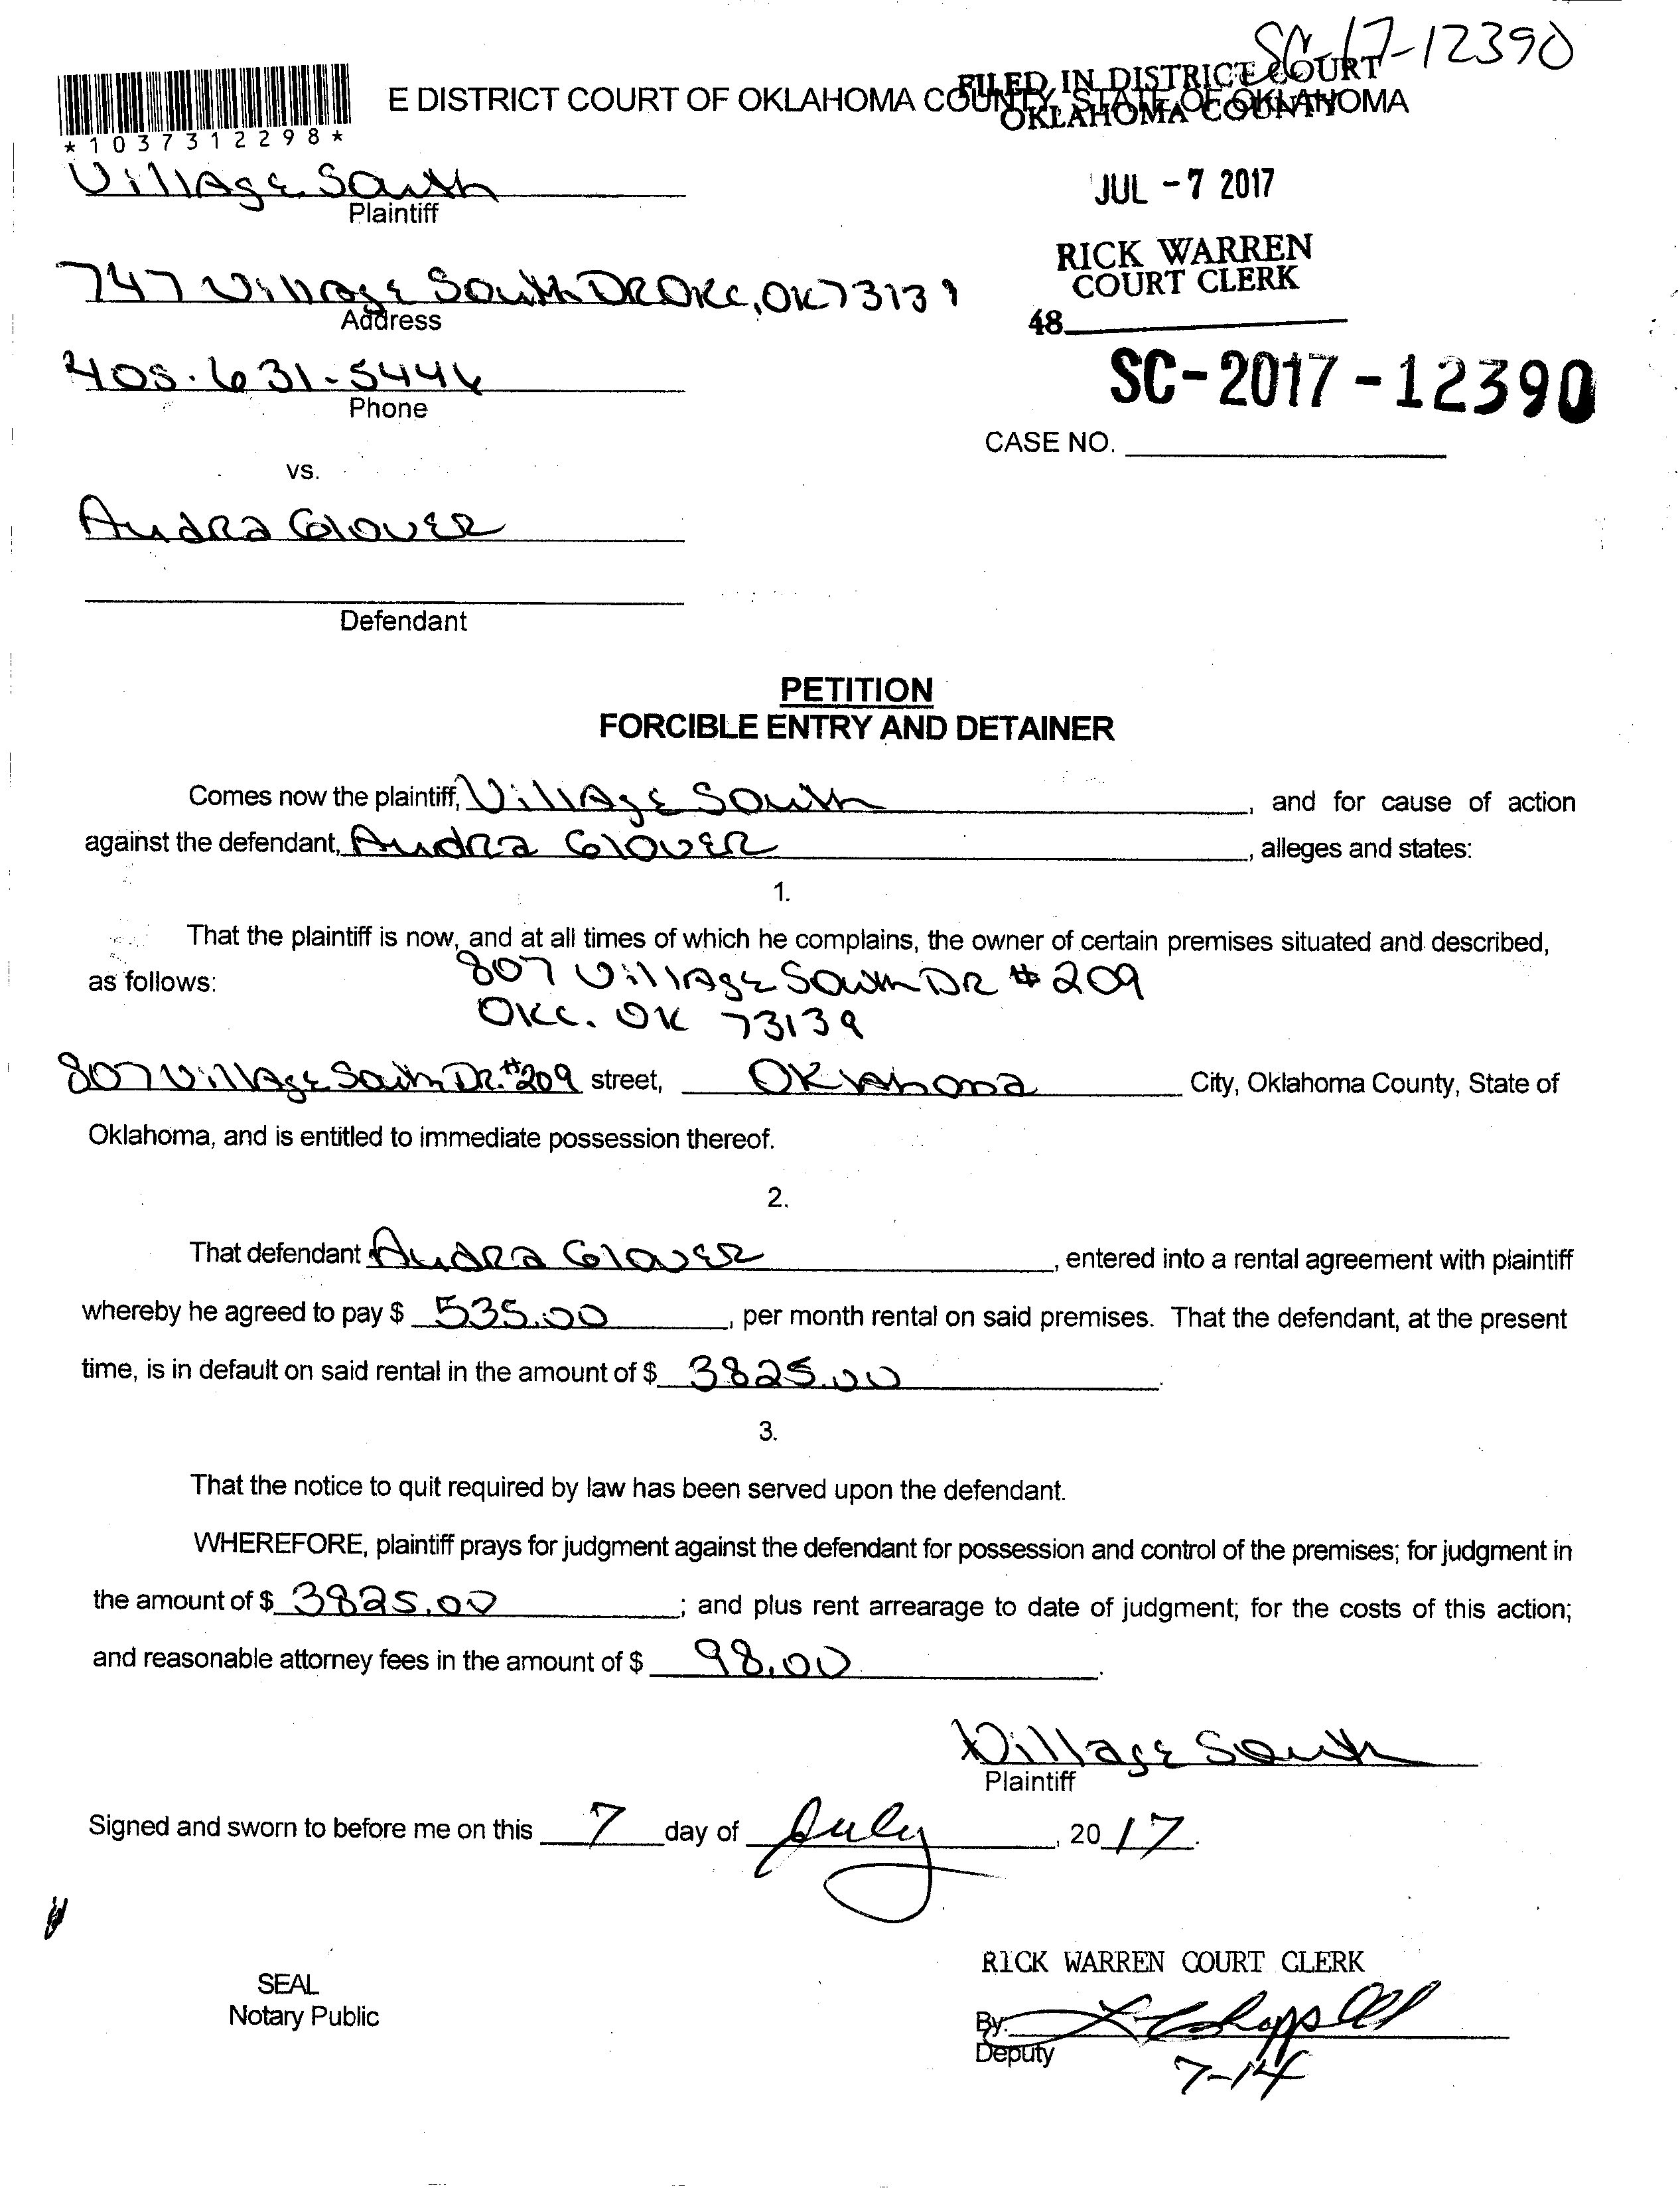 SC-17-12390
E DISTRICT COURT OF OKLAHOMA COUNTY, STATE OF OKLAHOMA
FILED IN DISTRICT COURT
OKLAHOMA COUNTY
*1037312298*
Village South
Plaintiff
JUL -7 2017
RICK WARREN
COURT CLERK
747 Village South DR OKC, OK 73139
Address
48
405.631-5446
Phone
SC-2017-12390
CASE NO.
vs.
Audra Glover
Defendant
PETITION
FORCIBLE ENTRY AND DETAINER
Comes now the plaintiff, Village South, and for cause of action
against the defendant, Audra Glover, alleges and states:
1.
That the plaintiff is now, and at all times of which he complains, the owner of certain premises situated and described,
as follows: 807 Village South DR #209
OKC. OK 73139
807 Village South Dr. #209 street, Oklahoma City, Oklahoma County, State of
Oklahoma, and is entitled to immediate possession thereof.
2.
That defendant Audra Glover, entered into a rental agreement with plaintiff
whereby he agreed to pay $ 535.00, per month rental on said premises. That the defendant, at the present
time, is in default on said rental in the amount of $ 3825.00.
3.
That the notice to quit required by law has been served upon the defendant.
WHEREFORE, plaintiff prays for judgment against the defendant for possession and control of the premises; for judgment in
the amount of $ 3825.00; and plus rent arrearage to date of judgment; for the costs of this action;
and reasonable attorney fees in the amount of $ 98.00.
Village South
Plaintiff
Signed and sworn to before me on this 7 day of July, 2017.
RICK WARREN COURT CLERK
SEAL
Notary Public
By:
Deputy
7-14